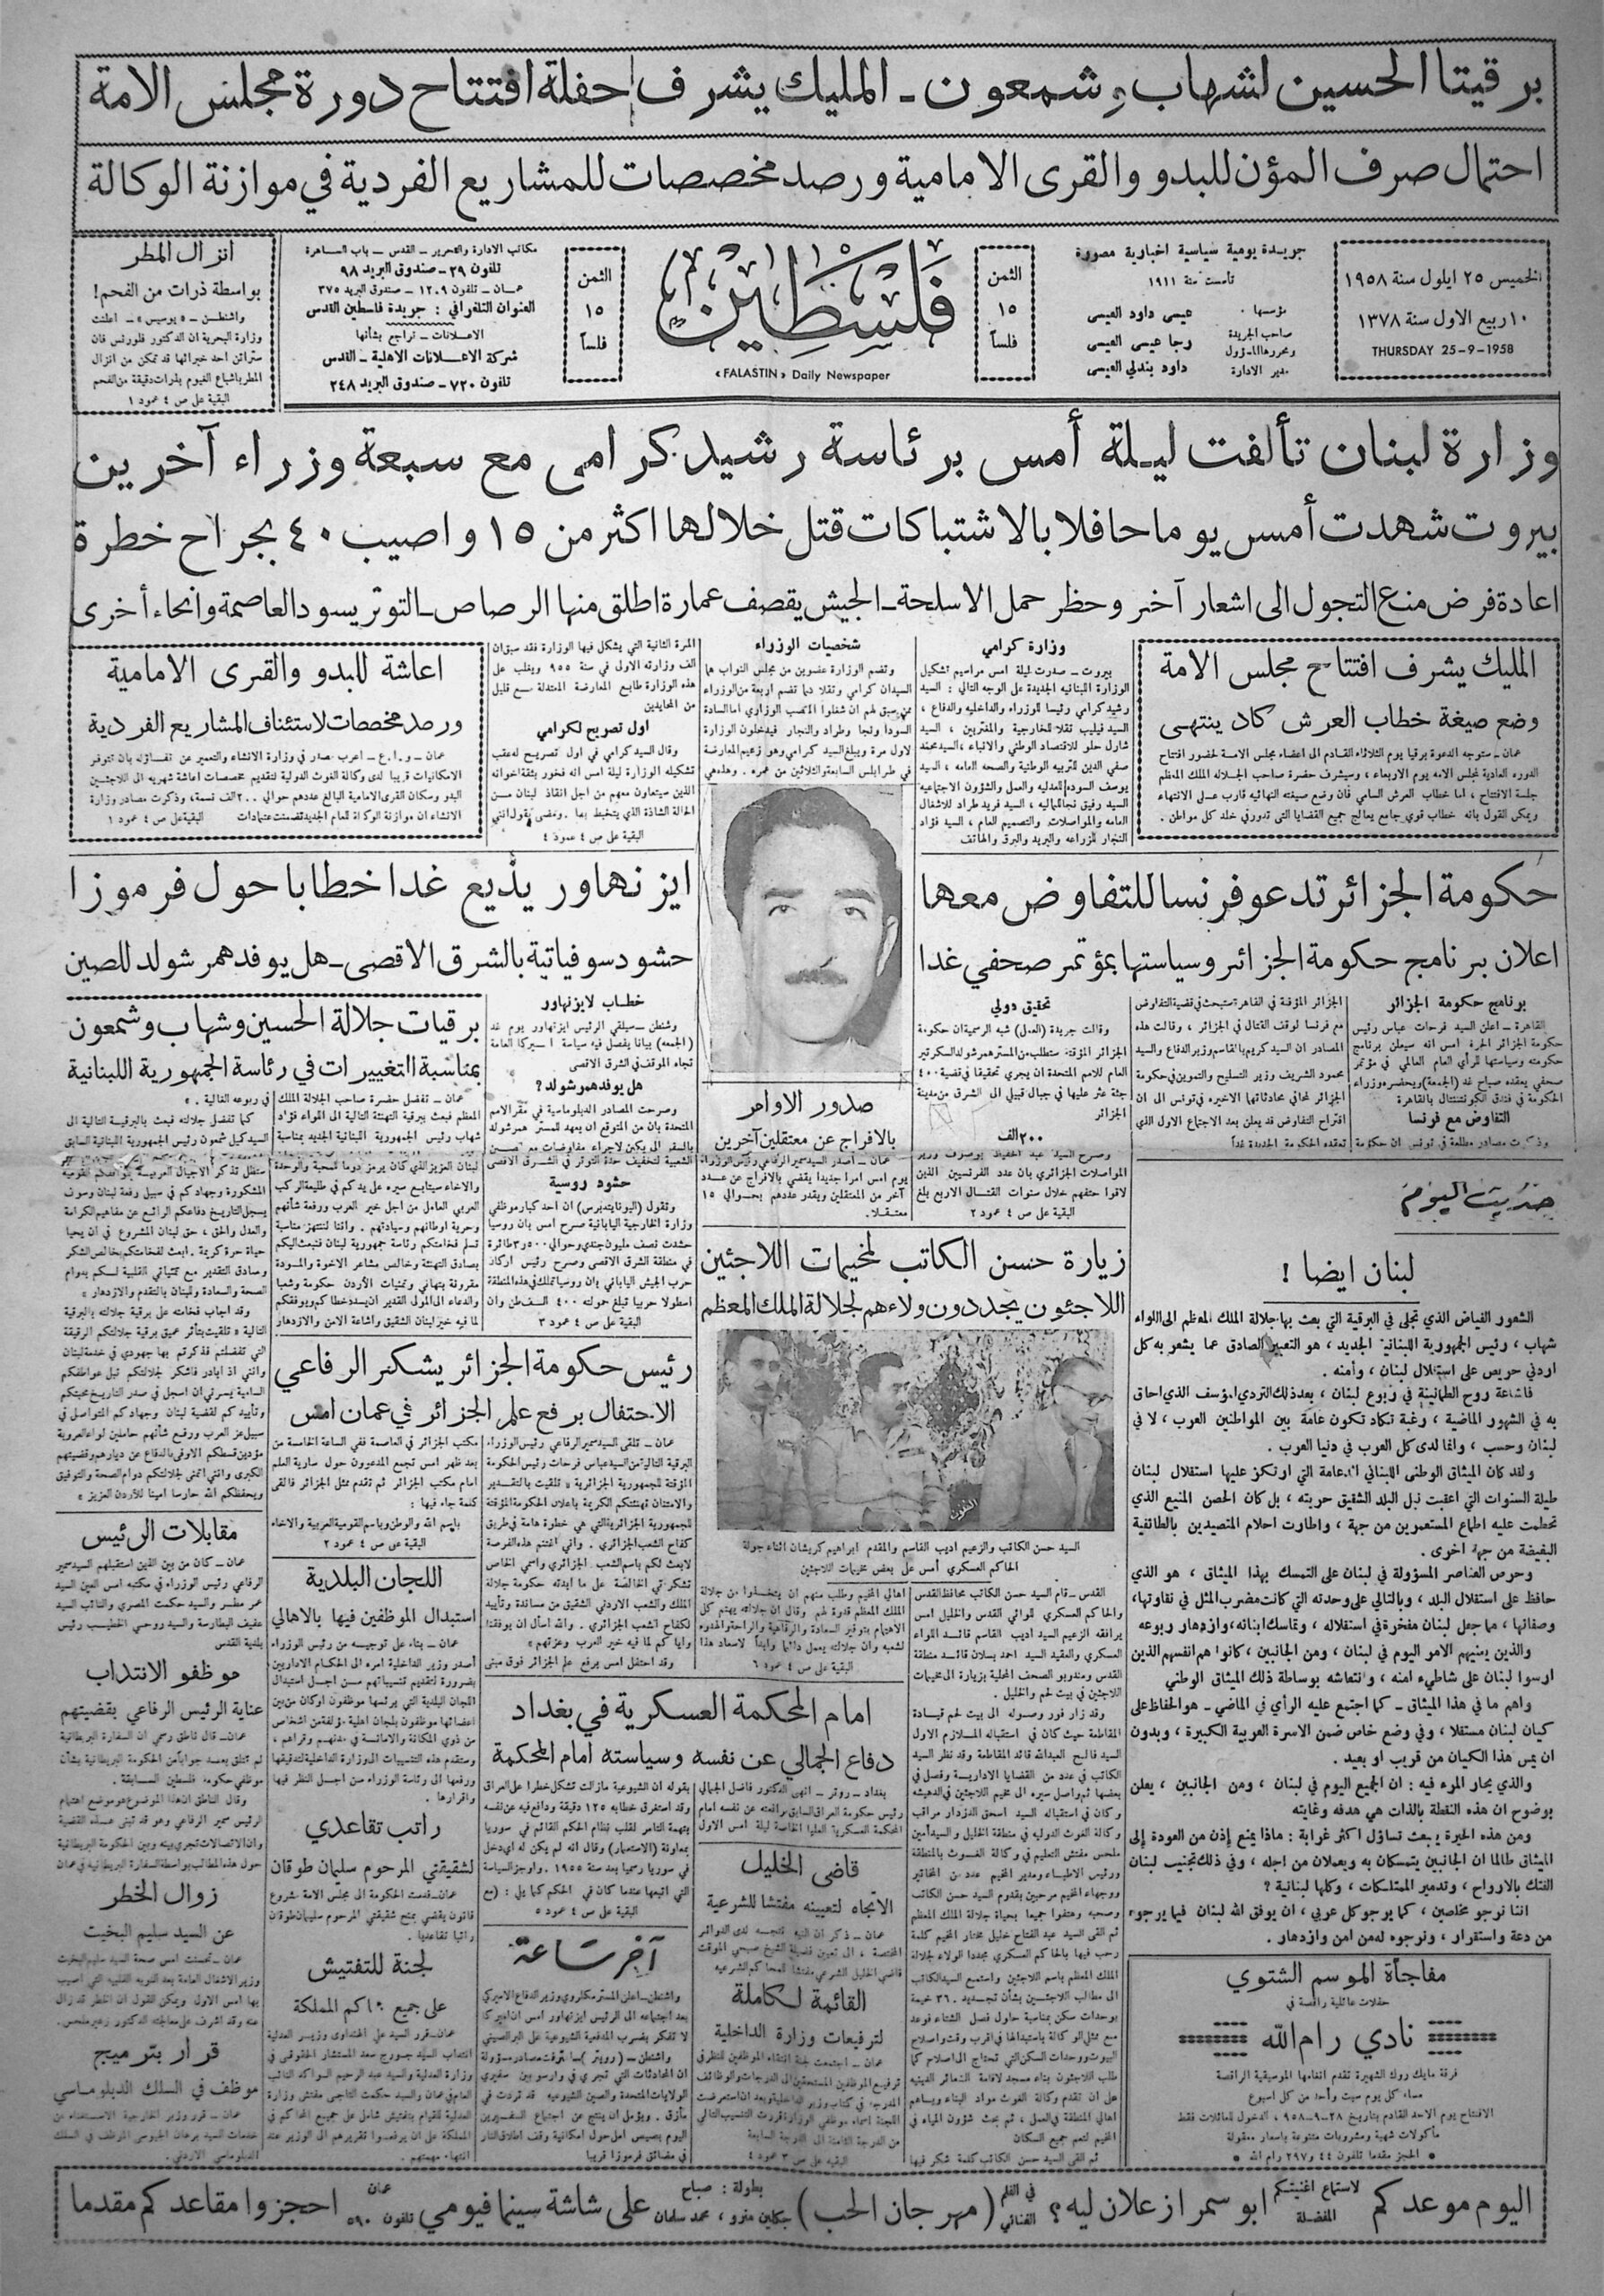 برقيتا الحسين لشهاب وشمعون ـ المليك يشرف حفلة افتتاح دورة مجلس الامة
احتمال صرف المؤن للبدو والقرى الامامية ورصد مخصصات للمشاريع الفردية في موازنة الوكالة
الخميس ٢٥ ايلول سنة ١٩٥٨
١٠ ربيع الاول سنة ١٣٧٨
THURSDAY 25-9-1958
جريدة يومية سياسية اخبارية مصورة
تأسست سنة ١٩١١
مؤسسها : عيسى داود العيسى
صاحب الجريدة
ومحررها المسؤول رجا عيسى العيسى
مدير الادارة داود بندلي العيسى
الثمن
١٥
فلساً
فلسطين
«FALASTIN» Daily Newspaper
الثمن
١٥
فلساً
مكاتب الادارة والتحرير ـ القدس ـ باب الساهرة
تلفون ٢٩ ـ صندوق البريد ٩٨
عمـان ـ تلفون ١٢٠٩ ـ صندوق البريد ٣٧٥
العنوان التلغرافي : جريدة فلسطين القدس
الاعـلانات ـ تراجع بشأنها
شركة الاعـلانات الاهلية ـ القدس
تلفون ٧٢٠ ـ صندوق البريد ٢٤٨
انزال المطر
بواسطة ذرات من الفحم!
واشنطـن ـ «يوسيس» ـ اعلنت
وزارة البحرية ان الدكتور فلورنس فان
ستراتن احد خبرائها قد تمكن من انزال
المطر باشباع الغيوم بذرات دقيقة من الفحم
البقية على ص ٤ عمود ١
وزارة لبنان تألفت ليلة أمس برئاسة رشيد كرامي مع سبعة وزراء آخرين
بيروت شهدت أمس يوما حافلا بالاشتباكات قتل خلالها اكثر من ١٥ واصيب ٤٠ بجراح خطرة
اعادة فرض منع التجول الى اشعار آخر وحظر حمل الاسلحة ـ الجيش يقصف عمارة اطلق منها الرصاص ـ التوتر يسود العاصمة وانحاء أخرى
المليك يشرف افتتاح مجلس الامة
وضع صيغة خطاب العرش كاد ينتهي
عمان ـ ستوجه الدعوة برقيا يوم الثلاثاء القادم الى اعضاء مجلس الامة لحضور افتتاح
الدوره العادية لمجلس الامه يوم الاربعاء ، وسيشرف حضرة صاحب الجلاله الملك المعظم
جلسة الافتتاح ، اما خطاب العرش السامي فان وضع صيغته النهائيه قارب على الانتهاء
ويمكن القول بانه خطاب قوي جامع يعالج جميع القضايا التي تدور في خلد كل مواطن .
وزارة كرامي
بيروت ـ صدرت ليلة امس مراسيم تشكيل
الوزارة اللبنانيه الجديدة على الوجه التالي : السيد
رشيد كرامي رئيسا للوزراء والداخليه والدفاع ،
السيد فيليب تقلا للخارجية والمغتربين ، السيد
شارل حلو للاقتصاد الوطني والانباء ، السيد محمد
صفي الدين للتربيه الوطنية والصحه العامه ، السيد
يوسف السودا للعدليه والعمل والشؤون الاجتماعيه
السيد رفيق نجا للماليه ، السيد فريد طراد للاشغال
العامه والمواصلات والتصميم العام ، السيد فؤاد
النجار للزراعه والبريد والبرق والهاتف
شخصيات الوزراء
وتضم الوزارة عضوين من مجلس النواب هما
السيدان كرامي وتقلا
لاول مرة ويبلغ السيد كرامي وهو زعيم المعارضة
في طرابلس السابعة والثلاثين من عمره . وهذه هي
المرة الثانية التي يشكل فيها الوزارة فقد سبق ان
الف وزارته الاولى في سنة ٩٥٥ ويغلب على
هذه الوزارة طابع المعارضة المعتدلة مع قليل
من المحايدين
اول تصريح لكرامي
وقال السيد كرامي في اول تصريح له عقب
تشكيله الوزارة ليلة امس انه فخور بثقة اخوانه
الذين سيتعاون معهم من اجل انقاذ لبنان من
الحالة الشاذة التي يتخبط بها .
البقية على ص ٤ عمود ٤
اعاشة للبدو والقرى الامامية
ورصد مخصصات لاستئناف المشاريع الفردية
عمان ـ و.ا.ع ـ اعرب مصدر في وزارة الانشاء والتعمير عن تفاؤله بان تتوفر
الامكانيات قريبا لدى وكالة الغوث الدولية لتقديم مخصصات اعاشة شهريه الى اللاجئين
البدو وسكان القرى الامامية البالغ عددهم حوالي ٢٠٠ الف نسمة، وذكرت مصادر وزارة
الانشاء ان موازنة الوكالة للعام الجديد تضمنت اعتمادات البقية على ص ٤ عمود ١
حكومة الجزائر تدعو فرنسا للتفاوض معها
اعلان برنامج حكومة الجزائر وسياستها بمؤتمر صحفي غدا
برنامج حكومة الجزائر
القاهرة ـ اعلن السيد فرحات عباس رئيس
حكومة الجزائر الحرة امس انه سيعلن برنامج
حكومته وسياستها للرأي العام العالمي في مؤتمر
صحفي يعقده صباح غد (الجمعة) ويحضره وزراء
الحكومة في فندق الكونتننتال بالقاهرة
التفاوض مع فرنسا
وذكرت مصادر مطلعة في تونس ان حكومة
الجزائر المؤقتة في القاهرة ستبحث في قضية التفاوض
مع فرنسا لوقف القتال في الجزائر ، وقالت هذه
المصادر ان السيد كريم بالقاسم وزير الدفاع والسيد
محمود الشريف وزير التسليح والتموين في حكومة
الجزائر
اقتراح التفاوض قد يعلن بعد الاجتماع الاول الذي
تعقده الحكومة الجديدة غداً
تحقيق دولي
وقالت جريدة (العمل) شبه الرسمية ان حكومة
الجزائر المؤقتة ستطلب من المستر همر شولد السكرتير
العام للامم المتحدة ان يجري تحقيقا في قضية ٤٠٠
جثة عثر عليها في جبال قبيلي الى الشرق من مدينة
الجزائر
٢٠٠ الف
وصرح السيد عبد الحفيظ بوصوف وزير
المواصلات الجزائري بان عدد الفرنسيين الذين
لاقوا حتفهم خلال سنوات القتال الاربع بلغ
البقية على ص ٤ عمود ٢
صدور الاوامر
بالافراج عن معتقلين آخرين
عمان ـ أصدر السيد سمير الرفاعي رئيس الوزراء
يوم امس امرا جديدا يقضي بالافراج عن عدد
آخر من المعتقلين ويقدر عددهم بحوالي ١٥
معتقلا.
ايزنهاور يذيع غدا خطابا حول فرموزا
حشود سوفياتية بالشرق الاقصى ـ هل يوفد همرشولد للصين
خطاب لايزنهاور
وشنطن ـ سيلقي الرئيس ايزنهاور يوم غد
(الجمعة) بيانا يفصل فيه سياسة اميركا العامة
تجاه الموقف في الشرق الاقصى
هل يوفد همرشولد ؟
وصرحت المصادر الدبلوماسية في مقر الامم
المتحدة بان من المتوقع ان يعهد للمستر همرشولد
بالسفر الى بكين لاجراء مفاوضات مع الصين
الشعبية لتخفيف حدة التوتر في الشرق الاقصى
حشود روسية
وتقول (اليونايتدبرس) ان احد كبار موظفي
وزارة الخارجية اليابانية صرح امس بان روسيا
حشدت نصف مليون جندي وحوالي ٣٥٠٠ طائرة
في منطقة الشرق الاقصى وصرح رئيس اركان
حرب الجيش الياباني بان روسيا تملك في هذه المنطقة
اسطولا حربيا تبلغ حمولته ٤٠٠ الف طن وان
البقية على ص ٤ عمود ٣
برقيات جلالة الحسين وشهاب وشمعون
بمناسبة التغييرات في رئاسة الجمهورية اللبنانية
عمان ـ تفضل حضرة صاحب الجلالة الملك
المعظم فبعث ببرقية التهنئة التالية الى اللواء فؤاد
شهاب رئيس الجمهورية اللبنانية الجديد بمناسبة
لبنان العزيز الذي كان يرمز دوما للمحبة والوحدة
والاخاء سيتابع سيره على يدكم في طليعة الركب
العربي العامل من اجل خير العرب ورفعة شأنهم
وحرية اوطانهم وسيادتهم . وانا لننتهز مناسبة
تسلم فخامتكم رئاسة جمهورية لبنان فنبعث اليكم
بصادق التهنئة وخالص مشاعر الاخوة والمودة
مقرونة بتهاني وتمنيات الأردن حكومة وشعبا
والدعاء الى المولى القدير ان يسدد خطاكم ويوفقكم
لما فيه خير لبنان الشقيق واشاعة الامن والازدهار
في ربوعه الغالية . »
كما تفضل جلالته فبعث بالبرقية التالية الى
السيد كميل شمعون رئيس الجمهورية اللبنانية السابق
المشكورة وجهادكم في سبيل رفعة لبنان وسوف
يسجل التاريخ دفاعكم الرائع عن مفاهيم الكرامة
والعدل والحق ، حق لبنان المشروع في ان يحيا
حياة حرة كريمة . ابعث لفخامتكم بخالص الشكر
وصادق التقدير مع تمنياتي القلبية لكم بدوام
الصحة والسعادة ولبنان بالتقدم والازدهار »
وقد اجاب فخامته على برقية جلالته بالبرقية
التالية « تلقيت بتأثر عميق برقية جلالتكم الرقيقة
التي تفضلتم فذكرتم بها جهودي في خدمة لبنان
وانني اذ ابادر فاشكر لجلالتكم نبل عواطفكم
السامية يسرني ان اسجل في صدر التاريخ محبتكم
وتأييدكم لقضية لبنان وجهادكم المتواصل في
سبيل عز العرب ورفع شأنهم حاملين لواء العروبة
مؤدين قسطكم الاوفى بالدفاع عن ديارهم وقضيتهم
الكبرى وانني اتمنى لجلالتكم دوام الصحة والتوفيق
ويحفظكم الله حارسا امينا للأردن العزيز »
حديث اليوم
لبنان ايضا !
الشعور الفياض الذي تجلى في البرقية التي بعث بها جلالة الملك المعظم الى اللواء
شهاب ، رئيس الجمهورية اللبنانية الجديد ، هو التعبير الصادق عما يشعر به كل
اردني حريص على استقلال لبنان ، وأمنه .
فاشاعة روح الطمأنينة في ربوع لبنان ، بعد ذلك التردي المؤسف الذي احاق
به في الشهور الماضية ، رغبة تكاد تكون عامة بين المواطنين العرب ، لا في
لبنان وحسب ، وانما لدى كل العرب في دنيا العرب .
ولقد كان الميثاق الوطني اللبناني الدعامة التي ارتكز عليها استقلال لبنان
طيلة السنوات التي اعقبت نيل البلد الشقيق حريته ، بل كان الحصن المنيع الذي
تحطمت عليه اطماع المستعمرين من جهة ، واطارت احلام المتصيدين بالطائفية
البغيضة من جهة اخرى .
وحرص العناصر المسؤولة في لبنان على التمسك بهذا الميثاق ، هو الذي
حافظ على استقلال البلد ، وبالتالي على وحدته التي كانت مضرب المثل في نقاوتها،
وصفائها ، مما جعل لبنان مفخرة في استقلاله ، وتماسك ابنائه ، وازدهار ربوعه
والذين يعنيهم الامر اليوم في لبنان ، ومن الجانبين ، كانوا هم انفسهم الذين
ارسوا لبنان على شاطىء امنه ، وانتعاشه بوساطة ذلك الميثاق الوطني
واهم ما في هذا الميثاق ـ كما اجتمع عليه الرأي في الماضي ـ هو الحفاظ على
كيان لبنان مستقلا ، وفي وضع خاص ضمن الاسرة العربية الكبيرة ، وبدون
ان يمس هذا الكيان من قريب او بعيد .
والذي يحار المرء فيه : ان الجميع اليوم في لبنان ، ومن الجانبين ، يعلن
بوضوح ان هذه النقطة بالذات هي هدفه وغايته
ومن هذه الحيرة يبعث تساؤل اكثر غرابة : ماذا يمنع إذن من العودة إلى
الميثاق طالما ان الجانبين يتمسكان به ويعملان من اجله ، وفي ذلك تجنيب لبنان
الفتك بالارواح ، وتدمير الممتلكات ، وكلها لبنانية ؟
اننا نرجو مخلصين ، كما يرجو كل عربي ، ان يوفق الله لبنان فيما يرجوه
من دعة واستقرار ، ونرجوه له من امن وازدهار .
زيارة حسن الكاتب لمخيمات اللاجئين
اللاجئون يجددون ولاءهم لجلالة الملك المعظم
السيد حسن الكاتب والزعيم اديب القاسم والمقدم ابراهيم كريشان اثناء جولة
الحاكم العسكري أمس على بعض مخيمات اللاجئين
القدس ـ قام السيد حسن الكاتب محافظ القدس
والحاكم العسكري للوائي القدس والخليل امس
يرافقه الزعيم السيد اديب القاسم قائد اللواء
العسكري والعقيد السيد احمد بسلان قائد منطقة
القدس ومندوبو الصحف المحلية بزيارة الى مخيمات
اللاجئين في بيت لحم والخليل .
وقد زار فور وصوله الى بيت لحم قيادة
المقاطعة حيث كان في استقباله الملازم الاول
السيد فالح العبدالله قائد المقاطعة وقد نظر السيد
الكاتب في عدد من القضايا الادارية وفصل في
بعضها ثم واصل سيره الى مخيم اللاجئين في الدهيشه
وكان في استقباله السيد اسحق الدزدار مراقب
وكالة الغوث الدوليه في منطقة الخليل والسيد أمين
ملحس مفتش التعليم في وكالة الغوث بالمنطقة
ورئيس الاطباء ومدير المخيم عدد من المخاتير
ووجهاء المخيم مرحبين بقدوم السيد حسن الكاتب
وصحبه وهتفوا جميعا بحياة جلالة الملك المعظم
ثم القى السيد عبد الفتاح خليل مختار المخيم كلمة
رحب فيها بالحاكم العسكري مجددا الولاء لجلالة
الملك المعظم باسم اللاجئين واستمع السيد الكاتب
الى مطالب اللاجئين بشأن تجديد ٣٦٠ خيمة
بوحدات سكن بمناسبة حلول فصل الشتاء فوعد
مع ممثلي الوكالة باستبدالها في اقرب وقت واصلاح
البيوت ووحدات السكن التي تحتاج الى اصلاح كما
طلب اللاجئون بناء مسجد لاقامة الشعائر الدينيه
على ان تقدم وكالة الغوث مواد البناء ويساهم
اهالي المنطقة في العمل ، ثم بحث شؤون المياه في
المخيم لتعم جميع السكان
ثم القى السيد حسن الكاتب كلمة شكر فيها
اهالي المخيم وطلب منهم ان يتخذوا من جلالة
الملك المعظم قدوة لهم وقال ان جلالته يهتم كل
الاهتمام بتوفير السعادة والرفاهية والراحة والهدوء
لشعبه وان جلالته يعمل دائما وابداً لاسعاد هذا
البقية على ص ٤ عمود ٦
رئيس حكومة الجزائر يشكر الرفاعي
الاحتفال برفع علم الجزائر في عمان امس
عمان ـ تلقى السيد سمير الرفاعي رئيس الوزراء
البرقية التالية من السيد عباس فرحات رئيس الحكومة
المؤقتة للجمهورية الجزائرية « تلقيت بالتقدير
والامتنان تهنئتكم الكريمة باعلان الحكومة المؤقتة
للجمهورية الجزائرية التي هي خطوة هامة في طريق
كفاح الشعب الجزائري . واني اغتنم هذه الفرصة
لابعث لكم باسم الشعب الجزائري واسمي الخاص
تشكراتي الخالصة على ما أبدته حكومة جلالة
الملك والشعب الاردني الشقيق من مساندة وتأييد
لكفاح الشعب الجزائري . والله اسأل ان يوفقنا
وايا كم لما فيه خير العرب وعزتهم »
وقد احتفل امس برفع علم الجزائر فوق مبنى
مكتب الجزائر في العاصمة ففي الساعة الخامسة من
بعد ظهر امس تجمع المدعوون حول سارية العلم
امام مكتب الجزائر ثم تقدم ممثل الجزائر فالقى
كلمة جاء فيها :
باسم الله والوطن وباسم القومية العربية والاخاء
البقية على ص ٤ عمود ٢
مقابلات الرئيس
عمان ـ كان من بين الذين استقبلهم السيد سمير
الرفاعي رئيس الوزراء في مكتبه امس العين السيد
عمر مطر والسيد حكمت المصري والنائب السيد
عفيف البطارسة والسيد روحي الخطيب رئيس
بلدية القدس
موظفو الانتداب
عناية الرئيس الرفاعي بقضيتهم
عمان ـ قال ناطق رسمي ان السفارة البريطانية
لم تتلق بعد جوابا من الحكومة البريطانية بشأن
موظفي حكومة فلسطين السابقة .
وقال الناطق ان هذا الموضوع هو موضع اهتمام
الرئيس سمير الرفاعي وهو قد تبنى هذه القضية
وان الاتصالات تجري بينه وبين الحكومة البريطانية
حول هذه المطالب بواسطة السفارة البريطانية في عمان
زوال الخطر
عن السيد سليم البخيت
عمان ـ تحسنت امس صحة السيد سليم البخيت
وزير الاشغال العامة بعد النوبه القلبيه التي اصيب
بها امس الاول ويمكن القول ان الخطر قد زال
عنه وقد اشرف على معالجته الدكتور زهير ملحس.
قرار بترميج
موظف في السلك الدبلوماسي
عمان ـ قرر وزير الخارجية الاستغناء عن
خدمات السيد برهان الجيوسي الموظف في السلك
الدبلوماسي الاردني .
اللجان البلدية
استبدال الموظفين فيها بالاهالي
عمان ـ بناء على توجيه من رئيس الوزراء
أصدر وزير الداخلية امره الى الحكام الاداريين
بضرورة تقديم تنسيباتهم من اجل استبدال
اللجان البلدية التي يرئسها موظفون او كان من بين
اعضائها موظفون بلجان اهلية مؤلفة من اشخاص
من ذوي المكانة والامانة في مدنهم وقراهم ،
وستقدم هذه التنسيبات الى وزارة الداخلية لتدقيقها
ورفعها الى رئاسة الوزراء من اجل النظر فيها
واقرارها .
راتب تقاعدي
لشقيقتي المرحوم سليمان طوقان
عمان ـ قدمت الحكومة الى مجلس الامة مشروع
قانون يقضي بمنح شقيقتي المرحوم سليمان طوقان
راتبا تقاعديا .
لجنة للتفتيش
على جميع محاكم المملكة
عمان ـ قرر السيد علي الهنداوي وزير العدلية
انتداب السيد جورج سعد المستشار الحقوقي في
وزارة العدلية والسيد عبد الرحيم الواكد النائب
العام في عمان والسيد حكمت التاجي مفتش وزارة
العدلية للقيام بتفتيش شامل على جميع المحاكم في
المملكة على ان يرفعوا تقريرهم الى الوزير عند
انتهاء مهمتهم .
امام المحكمة العسكرية في بغداد
دفاع الجمالي عن نفسه وسياسته امام المحكمة
بغداد ـ روتر ـ انهى الدكتور فاضل الجمالي
رئيس حكومة العراق السابق مرافعته عن نفسه امام
المحكمة العسكرية العليا الخاصة ليلة امس الاول
بقوله ان الشيوعية مازالت تشكل خطرا على العراق
وقد استغرق خطابه ١٢٥ دقيقة ودافع فيه عن نفسه
بتهمة التآمر لقلب نظام الحكم القائم في سوريا
بمعاونة (الاستعمار) وقال انه لم يكن له اي دخل
في سوريا رسميا بعد سنة ١٩٥٥ . واوجز السياسة
التي اتبعها عندما كان في الحكم كما يلي : (مع
البقية على ص ٤ عمود ٥
قاضي الخليل
الاتجاه لتعيينه مفتشا للشرعية
عمان ـ ذكر ان النية تتجه لدى الدوائر
المختصة ، الى تعيين فضيلة الشيخ صبحي الموقت
قاضي الخليل الشرعي مفتشا للمحاكم الشرعيه
القائمة الكاملة
لترفيعات وزارة الداخلية
عمان ـ اجتمعت لجنة انتقاء الموظفين للنظر في
ترفيع الموظفين المستحقين الى الدرجات والوظائف
من الدرجة الثامنة الى الدرجة السابعة
البقية على ص ٣ عمود ٤
آخر ساعة
واشنطن ـ اعلن المستر مكلروي وزير الدفاع الاميركي
بعد اجتماعه الى الرئيس ايزنهاور امس ان اميركا
لا تفكر بضرب المدفعية الشيوعية على البر الصيني
واشنطن ـ (رويتر) ـ اعترفت مصادر مسؤولة
ان المحادثات التي تجري في وارسو بين سفيري
الولايات المتحدة والصين الشيوعيه قد تردت في
مأزق . ويؤمل ان ينتج عن اجتماع السفيرين
اليوم بصيص امل حول امكانية وقف اطلاق النار
في مضائق فرموزا قريبا
مفاجأة الموسم الشتوي
حفلات عائلية راقصة في
نادي رام الله
فرقة مايك روك الشهيرة تقدم انغامها الموسيقية الراقصة
مساء كل يوم سبت وأحد من كل اسبوع
الافتتاح يوم الاحد القادم بتاريخ ٢٨ـ٩ـ٩٥٨ ، الدخول للعائلات فقط
مأكولات شهية ومشروبات متنوعة باسعار معقولة
● الحجز مقدما تلفون ٤٤ و ٢٩٧ رام الله ●
اليوم موعدكم لاستماع اغنيتكم المفضلة ابو سمرا زعلان ليه ؟ في الفلم الغنائي (مهرجان الحب) بطولة : صباح جكلين منرو ، محمد سلمان على شاشة سينما فيومي عمان تلفون ٥٩٠ احجزوا مقاعدكم مقدما